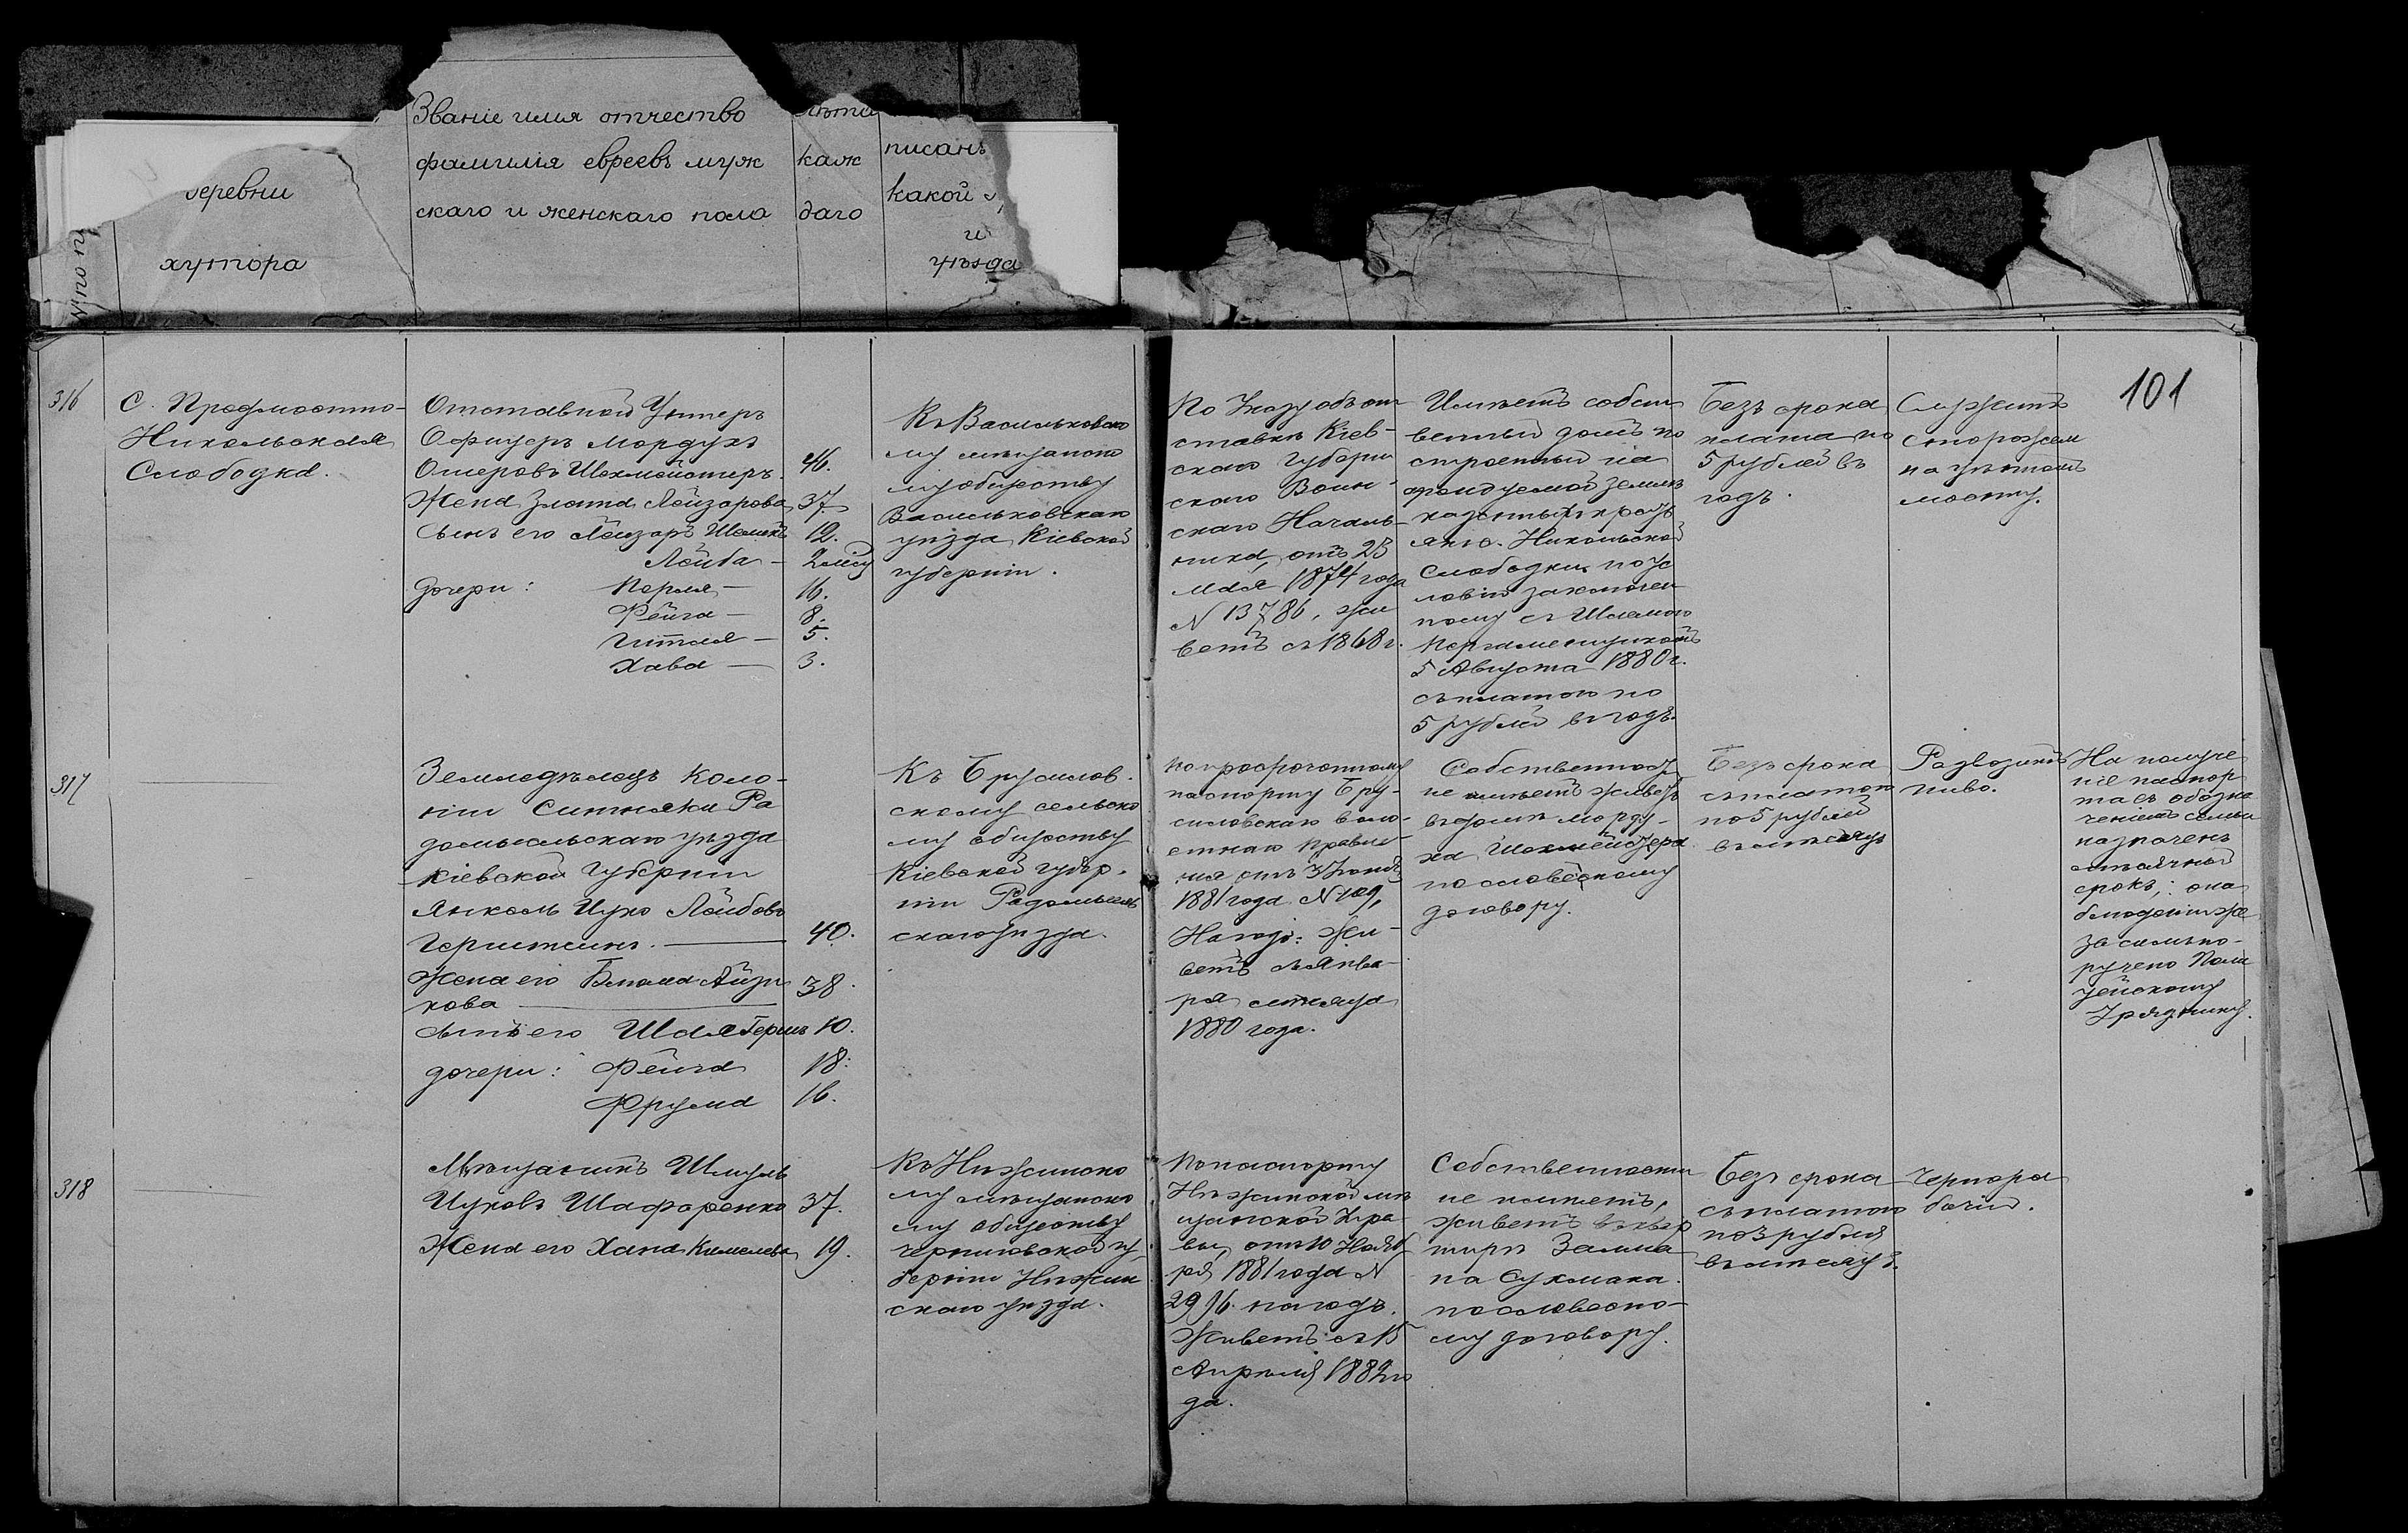 деревни
хутора
Званіе имя отчество
фамилія евреевъ муж
скаго и женскаго пола
Лѣта
каж
даго
писанъ
какой
и
уѣзда
101
316
С. Предмостно-
Никольская
Слободка.
Отставной Унтеръ
Офицеръ Мордухъ
Ошеровъ Шехмейстеръ.
46.
Жена Злата Лейзорова
37.
Сынъ его Лейзоръ Шлемъ
12.
Лейба —
2 мѣс
Дочери: Перля —
16.
Фейга —
8.
Гитля —
5.
Хава —
3.
Къ Васильковско
му мѣщанско
му обществу
Васильковскаго
уѣзда Кіевской
губерніи.
По Указу объ от
ставкѣ Кіев-
скаго Губерн
скаго Воин-
скаго Началь-
ника, отъ 23
мая 1874 года
N 13786, жи
ветъ съ 1868 г.
Имѣетъ собст
венный домъ по
строенный на
арендуемой землѣ
казенныхъ крест
янъ с. Никольской
Слободки по ус
ловію заключен
ному съ Шлемою
5 Августа 1880 г.
съ платою по
5 рублей въ годъ.
Безъ срока
плата по
5 рублей въ
годъ.
Служитъ
сторожем
на цѣпномъ
мосту.
317
Земледѣлецъ Коло-
ніи Ситняки Ра
домысльскаго уѣзда
Кіевской Губерніи
Янкель Ицко Лейбовъ
Герштеинъ. —
40.
Жена его Блюма Айзи
кова —
38.
Сынъ его Шая Гершъ
10.
дочери: Фейга
18.
Фрума
16.
Къ Брусилов-
скому сельско
му обществу
Кіевской губер-
ніи Радомысль
скаго уѣзда.
По просроченному
паспорту Бру-
силовскаго воло-
стнаго Правле
нія отъ
1881 года N 109,
На годъ. Жи-
ветъ съ Янва-
ря мѣсяца
1880 года.
Собственност
не имѣетъ живетъ
въ домѣ Морду-
ха Шехмейстера
по словесному
договору.
Безъ срока
съ платою
по 5 рублей
въ мѣсяцъ
Развозитъ
пиво.
На получе
ніе паспор
та съ обозна
ченіемъ семьи
назначенъ
мѣсячный
срокъ, а на
блюденіе же
за симъ по-
ручено Поли
цейскому
Уряднику.
318
Мѣщанинъ Шмуль
Ицковъ Шафаренко
37.
Жена его Хана
19.
Къ Нѣжинско
му мѣщанско
му обществу
Черниговской гу
берніи Нѣжин
скаго уѣзда.
По паспорту
Нѣжинской мѣ
щанской Упра
вы, отъ 10 Нояб
ря 1881 года N
2916 на годъ.
Живетъ съ 15
Апрѣля 1882 го
да.
Собственности
не имѣетъ,
живетъ въ квар
тирѣ Залма
на Сукмана
по словесно-
му договору.
Безъ срока
съ платою
по 3 рубля
въ мѣсяцъ.
Чернора
бочій.